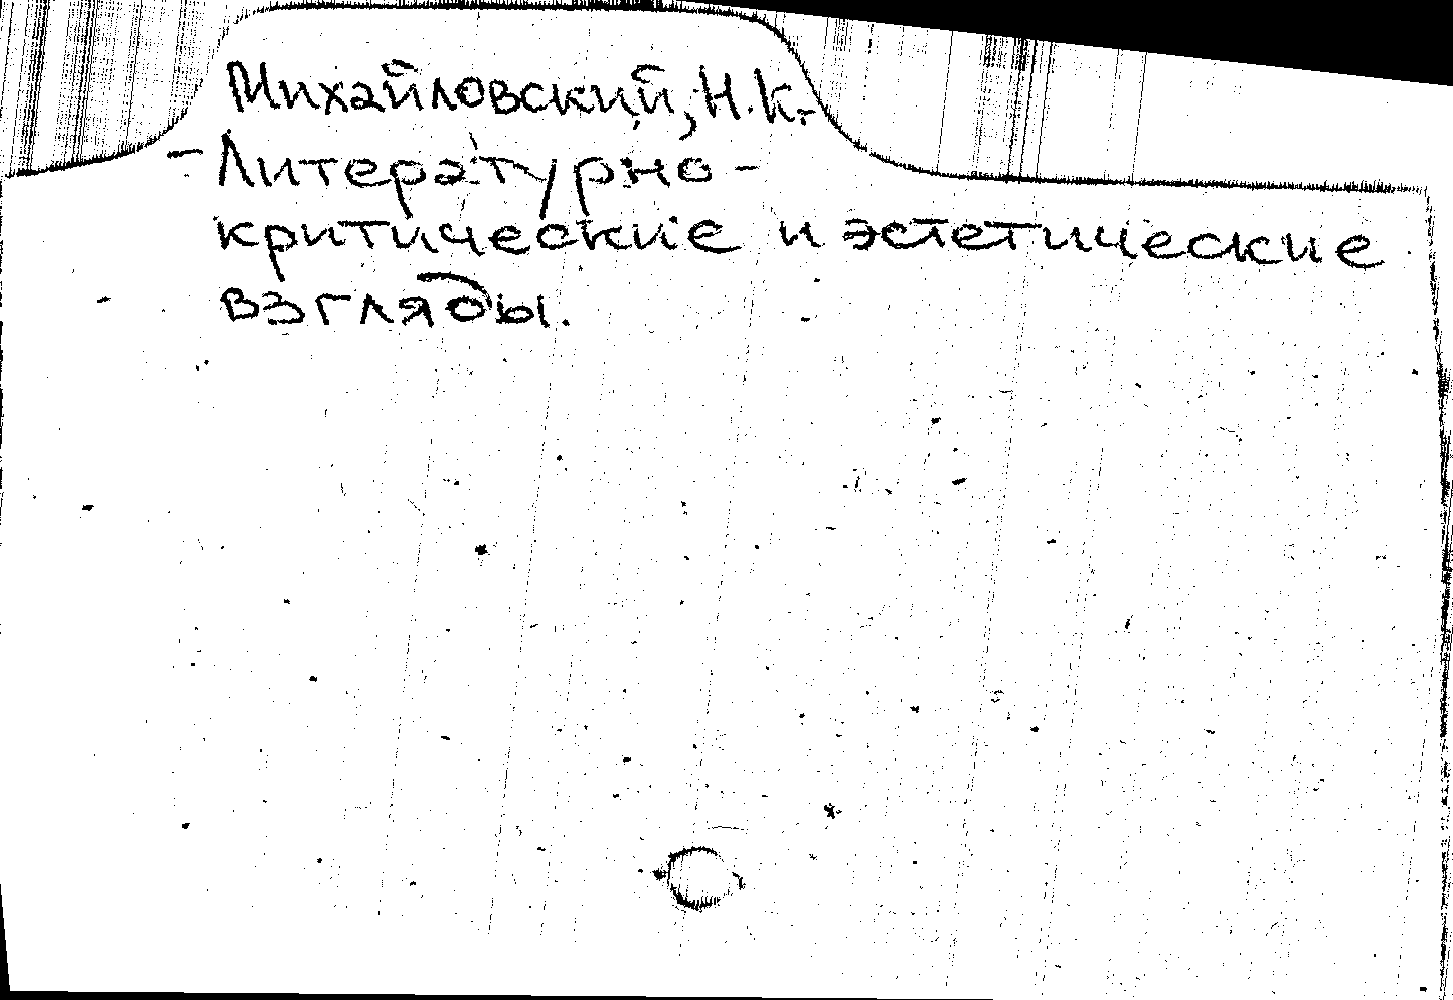 Михайловский, Н.К.-
- Литературно -
критические и эстетические
взгляды.